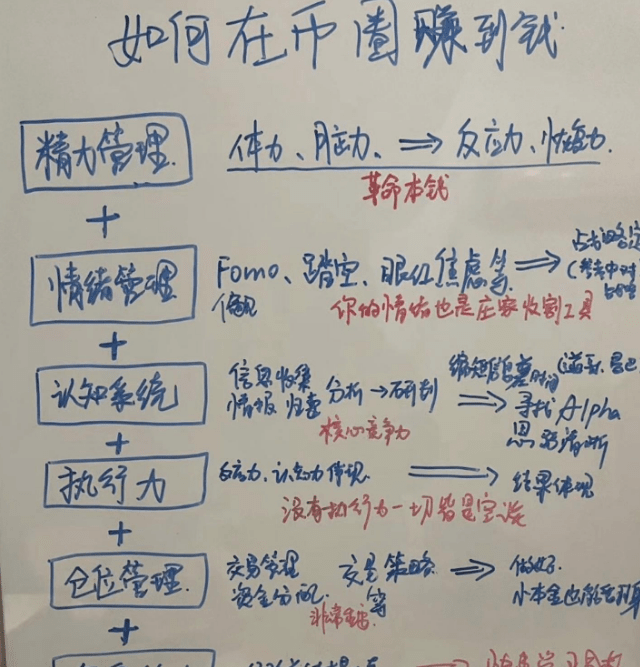 如何在币圈赚到钱
精力管理. 体力、脑力、⇒ 反应力、恢复力
革命本钱
+
情绪管理 Fomo、踏空、眼红焦虑等 ⇒
偏见
你的情绪也是庄家收割工具
+
认知系统 信息收集 分析→研判 ⇒ 缩短追赶时间
情报 归类 寻找Alpha
核心竞争力 思路清晰
+
执行力 反应力、认知力体现 ⇒ 结果体现
没有执行力一切皆是空谈
+
仓位管理. 交易管理 交易策略 ⇒ 做好
资金分配 等 小本金也能
+